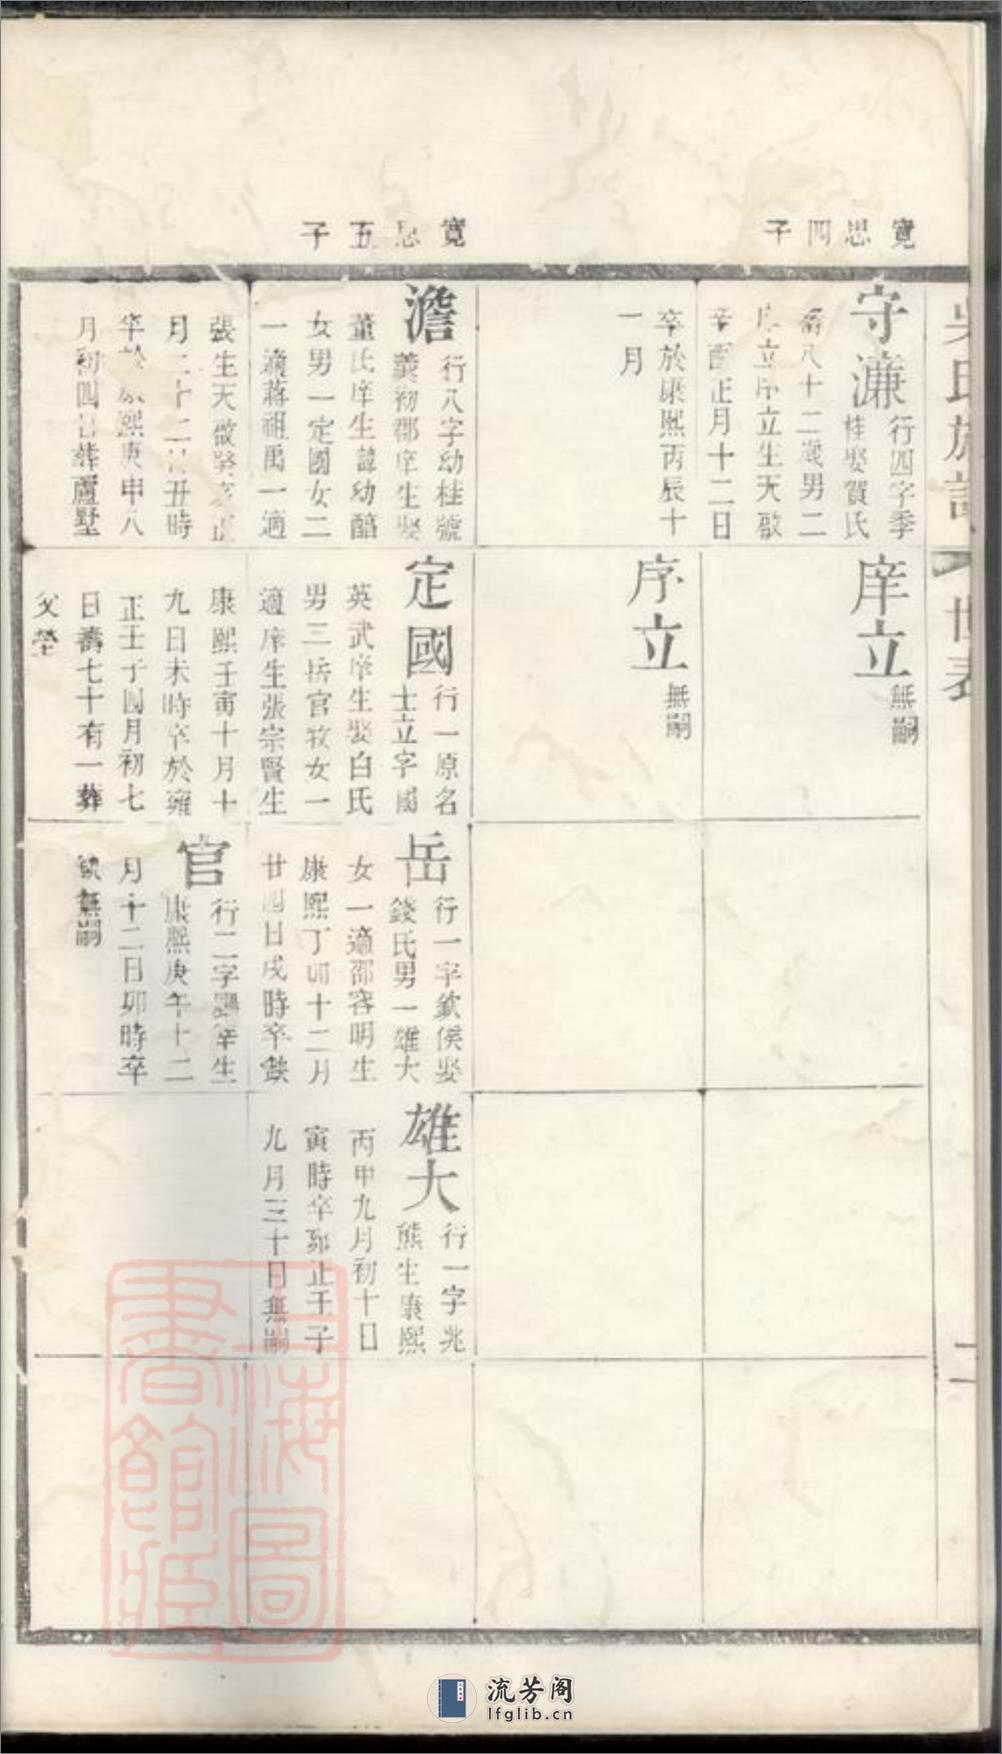 寬思四子
守濂
行四字季
桂娶賀氏
壽八十二歲男二
庠立序立生天啟
辛酉正月十二日
卒於康熙丙辰十
一月
庠立
無嗣
序立
無嗣
寬思五子
澹
行八字幼桂號
羲初郡庠生娶
董氏庠生諱幼醅
女男一定國女二
一適蔣祖禹一適
張生天啟癸亥正
月二十二日丑時
卒於康熙庚申八
月初四日葬蘆墅
定國
行一原名
士立字國
英武庠生娶白氏
男三岳官牧女一
適庠生張宗賢生
康熙壬寅十月十
九日未時卒於雍
正壬子四月初七
日壽七十有一葬
父塋
岳
行一字欽侯娶
錢氏男一雄大
女一適邵容明生
康熙丁卯十二月
廿四日戌時卒缺
官
行二字生
康熙庚午十二
月十二日卯時卒
缺無嗣
雄大
行一字兆
熊生康熙
丙申九月初十日
寅時卒雍正壬子
九月三十日無嗣
吳氏族譜
世表
二
上海圖書館藏
流芳阁
lfglib.cn